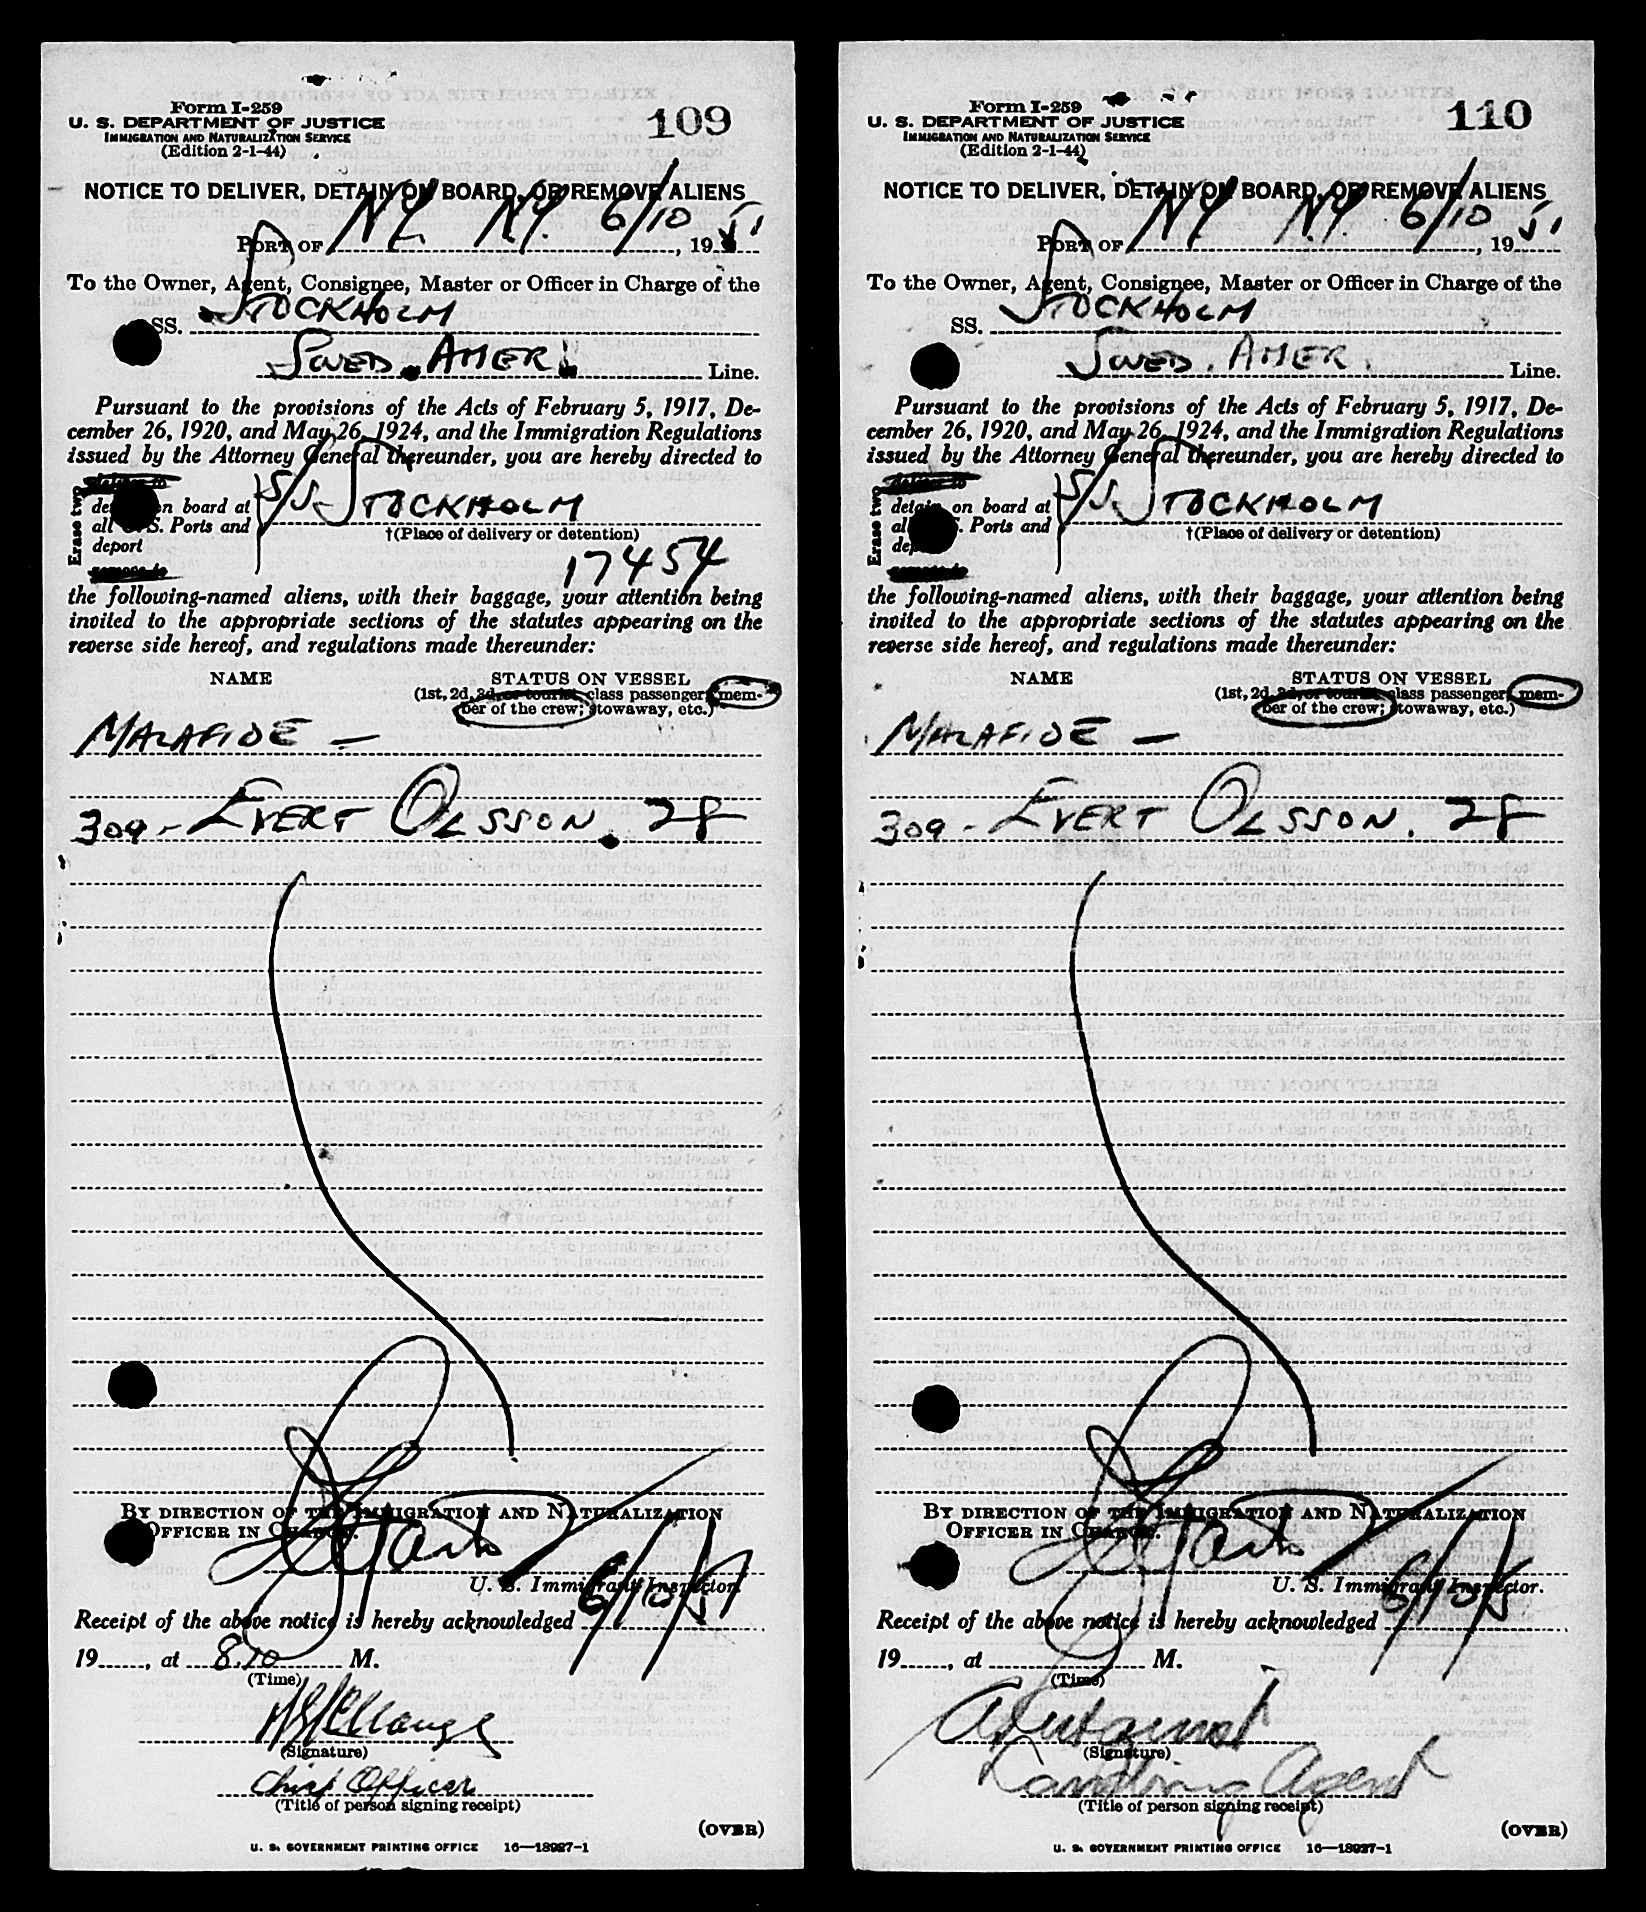 Form I-259
U. S. DEPARTMENT OF JUSTICE
IMMIGRATION AND NATURALIZATION SERVICE
(Edition 2-1-44)
109
NOTICE TO DELIVER, DETAIN ON BOARD, OR REMOVE ALIENS
PORT OF NY N.Y. 6/10, 1951
To the Owner, Agent, Consignee, Master or Officer in Charge of the
SS. STOCKHOLM
SWED. AMER. Line.
Pursuant to the provisions of the Acts of February 5, 1917, De-
cember 26, 1920, and May 26, 1924, and the Immigration Regulations
issued by the Attorney General thereunder, you are hereby directed to
Erase two
detain on board at
all U. S. Ports and
deport
remove to
S/S STOCKHOLM
†(Place of delivery or detention)
17454
the following-named aliens, with their baggage, your attention being
invited to the appropriate sections of the statutes appearing on the
reverse side hereof, and regulations made thereunder:
NAME STATUS ON VESSEL
(1st, 2d, 3d, or tourist class passenger; mem-
ber of the crew; stowaway, etc.)
MALAFIDE —
309 - EVERT OLSSON. 28
BY DIRECTION OF THE IMMIGRATION AND NATURALIZATION
OFFICER IN CHARGE.
U. S. Immigrant Inspector.
Receipt of the above notice is hereby acknowledged 6/10/51
19......, at 8.10 M.
(Time)
(Signature)
Chief Officer
(Title of person signing receipt)
(OVER)
U. S. GOVERNMENT PRINTING OFFICE 16—18927-1
Form I-259
U. S. DEPARTMENT OF JUSTICE
IMMIGRATION AND NATURALIZATION SERVICE
(Edition 2-1-44)
110
NOTICE TO DELIVER, DETAIN ON BOARD, OR REMOVE ALIENS
PORT OF NY N.Y. 6/10, 1951
To the Owner, Agent, Consignee, Master or Officer in Charge of the
SS. STOCKHOLM
SWED. AMER. Line.
Pursuant to the provisions of the Acts of February 5, 1917, De-
cember 26, 1920, and May 26, 1924, and the Immigration Regulations
issued by the Attorney General thereunder, you are hereby directed to
Erase two
detain on board at
all U. S. Ports and
deport
S/S STOCKHOLM
†(Place of delivery or detention)
the following-named aliens, with their baggage, your attention being
invited to the appropriate sections of the statutes appearing on the
reverse side hereof, and regulations made thereunder:
NAME STATUS ON VESSEL
(1st, 2d, 3d, or tourist class passenger; mem-
ber of the crew; stowaway, etc.)
MALAFIDE —
309 - EVERT OLSSON. 28
BY DIRECTION OF THE IMMIGRATION AND NATURALIZATION
OFFICER IN CHARGE.
U. S. Immigrant Inspector.
Receipt of the above notice is hereby acknowledged 6/10/5
19......, at ............ M.
(Time)
(Signature)
Landing Agent
(Title of person signing receipt)
(OVER)
U. S. GOVERNMENT PRINTING OFFICE 16—18927-1